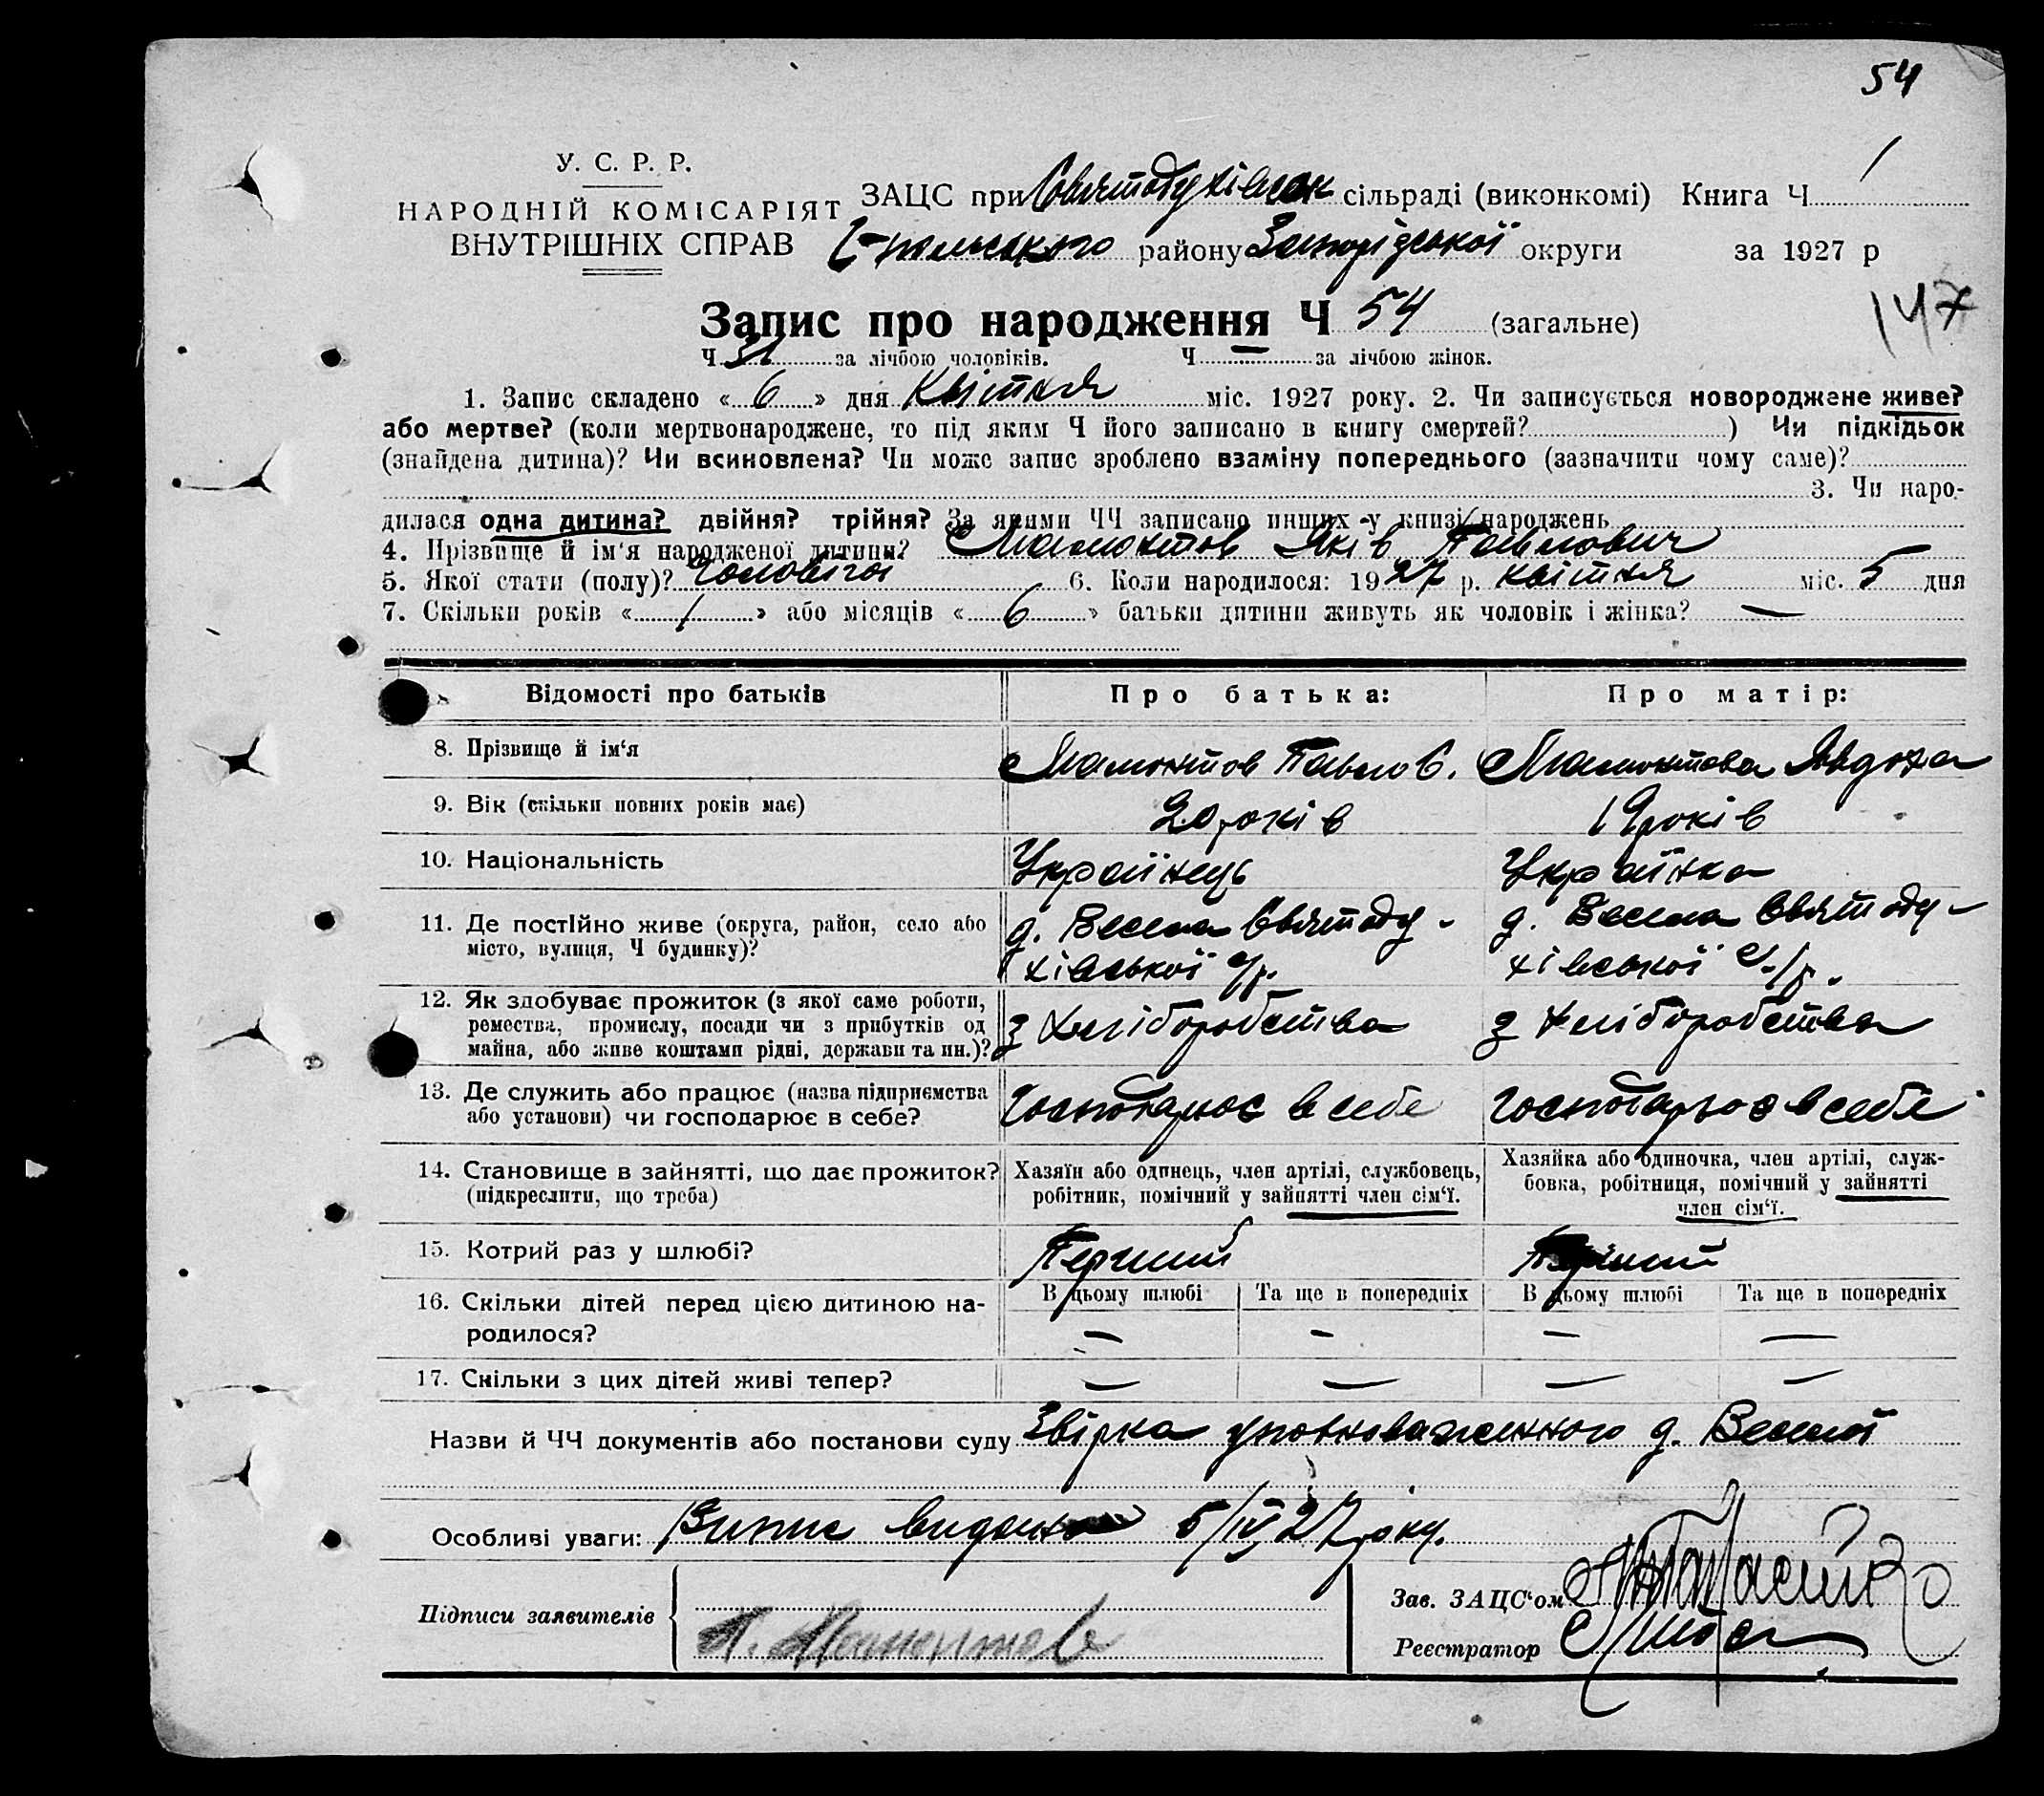 54
У. С. Р. Р.
НАРОДНІЙ КОМІСАРІЯТ
ВНУТРІШНІХ СПРАВ
ЗАЦС при Святодухівськ сільраді (виконкомі) Книга Ч 1
району Запорізької округи за 1927 р
147
Запис про народження Ч 54 (загальне)
Ч 31 за лічбою чоловіків. Ч — за лічбою жінок.
1. Запис складено « 6 » дня Квітня міс. 1927 року. 2. Чи записується новороджене живе?
або мертве? (коли мертвонароджене, то під яким Ч його записано в книгу смертей? ) Чи підкідьок
(знайдена дитина)? Чи всиновлена? Чи може запис зроблено взаміну попереднього (зазначити чому саме)?
3. Чи наро-
дилася одна дитина? двійня? трійня? За якими ЧЧ записано инших у книзі народжень
4. Прізвище й ім'я народженої дитини? Мамонтов Яків Павлович
5. Якої стати (полу)? Чоловічої 6. Коли народилося: 1927 р. квітня міс. 5 дня
7. Скільки років « 1 » або місяців « 6 » батьки дитини живуть як чоловік і жінка? —
Відомості про батьків Про батька: Про матір:
8. Прізвище й ім'я Мамонтов Павло С. Мамонтова Явдоха
9. Вік (скільки повних років має) 20 років 19 років
10. Національність Українець Українка
11. Де постійно живе (округа, район, село або д. Весела Святоду- д. Весела Святоду-
місто, вулиця, Ч будинку)? хівської с/р. хівської с/р.
12. Як здобуває прожиток (з якої саме роботи,
ремества, промислу, посади чи з прибутків од з хліборобства з хліборобства
майна, або живе коштами рідні, держави та ин.)?
13. Де служить або працює (назва підприємства Господарює в себе Господарює в себе
або установи) чи господарює в себе?
14. Становище в зайнятті, що дає прожиток? Хазяїн або одинець, член артілі, службовець, Хазяйка або одиночка, член артілі, служ-
(підкреслити, що треба) робітник, помічний у зайнятті член сім'ї. бовка, робітниця, помічний у зайнятті
член сім'ї.
15. Котрий раз у шлюбі? Перший Перший
16. Скільки дітей перед цією дитиною на- В цьому шлюбі Та ще в попередніх В цьому шлюбі Та ще в попередніх
родилося? — — — —
17. Скільки з цих дітей живі тепер? — — — —
Назви й ЧЧ документів або постанови суду Звірка уповноваженного д. Веселої
Особливі уваги: Випис видано 5/IV 27 року.
Підписи заявителів П. Мамонтов
Зав. ЗАЦС'ом
Реєстратор